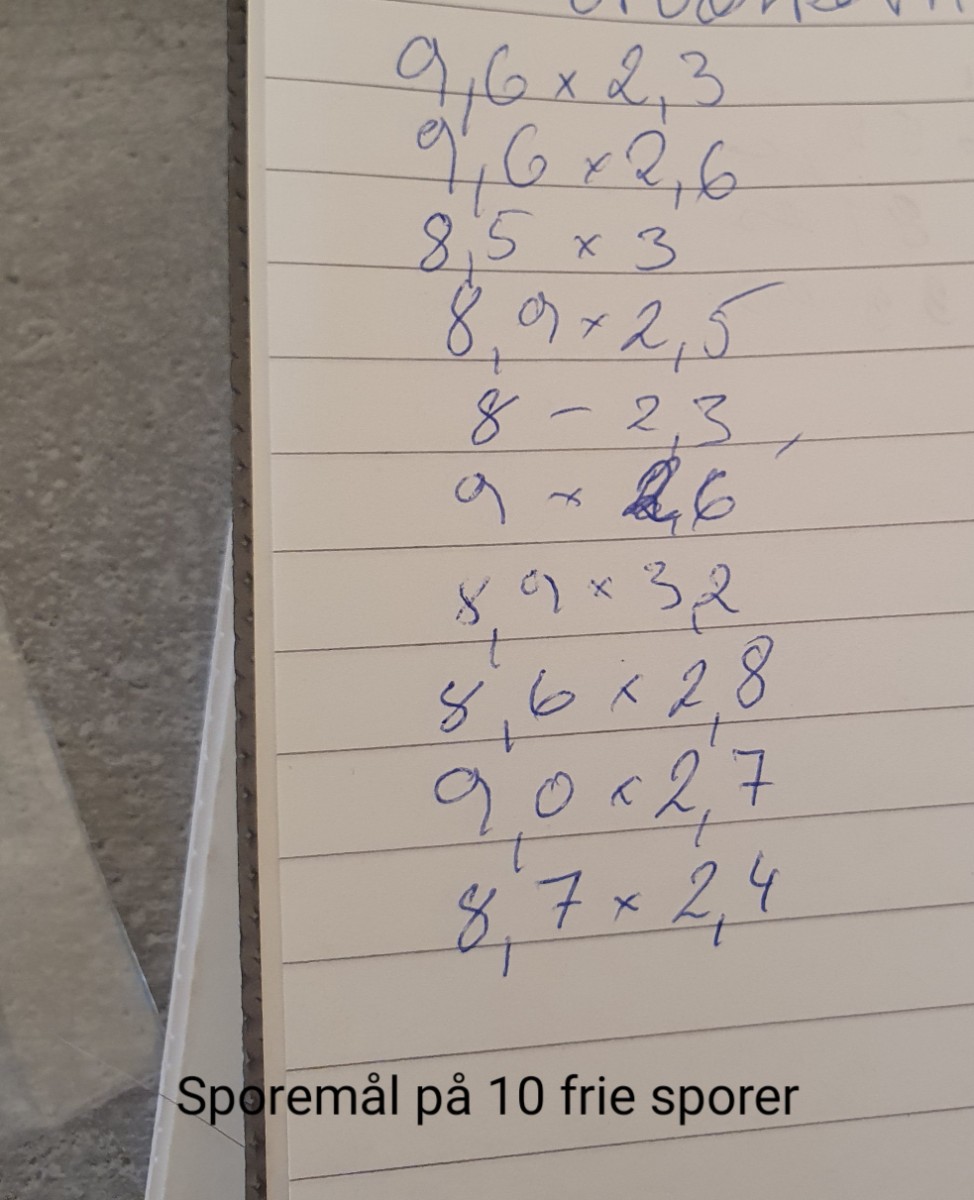 9,6 x 2,3
9,6 x 2,6
8,5 x 3
8,9 x 2,5
8 - 2,3
9 x 2,6
8,9 x 3,2
8,6 x 2,8
9,0 x 2,7
8,7 x 2,4
Sporemål på 10 frie sporer